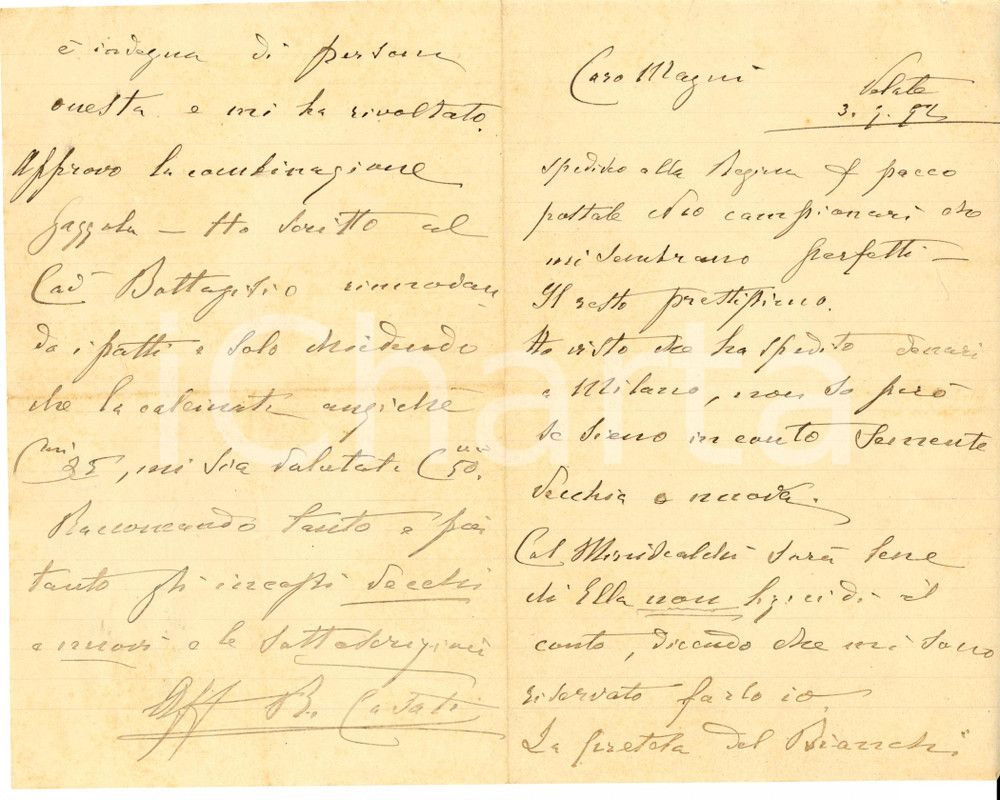 Caro Magni
Velate
3. 9. 92
spedisco alla Regina f pacco
postale No campionari che
mi sembrano perfetti —
Il resto prestissimo.
Ho visto che ha spedito denari
a Milano, non so però
se sieno in conto Semente
vecchia o nuova.
Col Miniscalchi sarà bene
di Ella non liquidi il
conto, dicendo che mi sono
riservato farlo io.
La pretesa del Bianchi
è indegna di persona
onesta e mi ha rivoltato.
Approvo la combinazione
Gazzola — Ho scritto al
Cav Battagisio rinnovan
do i patti e solo chiedendo
che la calcinata anziché
Cmi 25, mi sia valutata Cmi 50.
Raccomando tanto e poi
tanto gli incassi vecchi
e nuovi e le sottoscrizioni
Aff R. Casati
iCharta